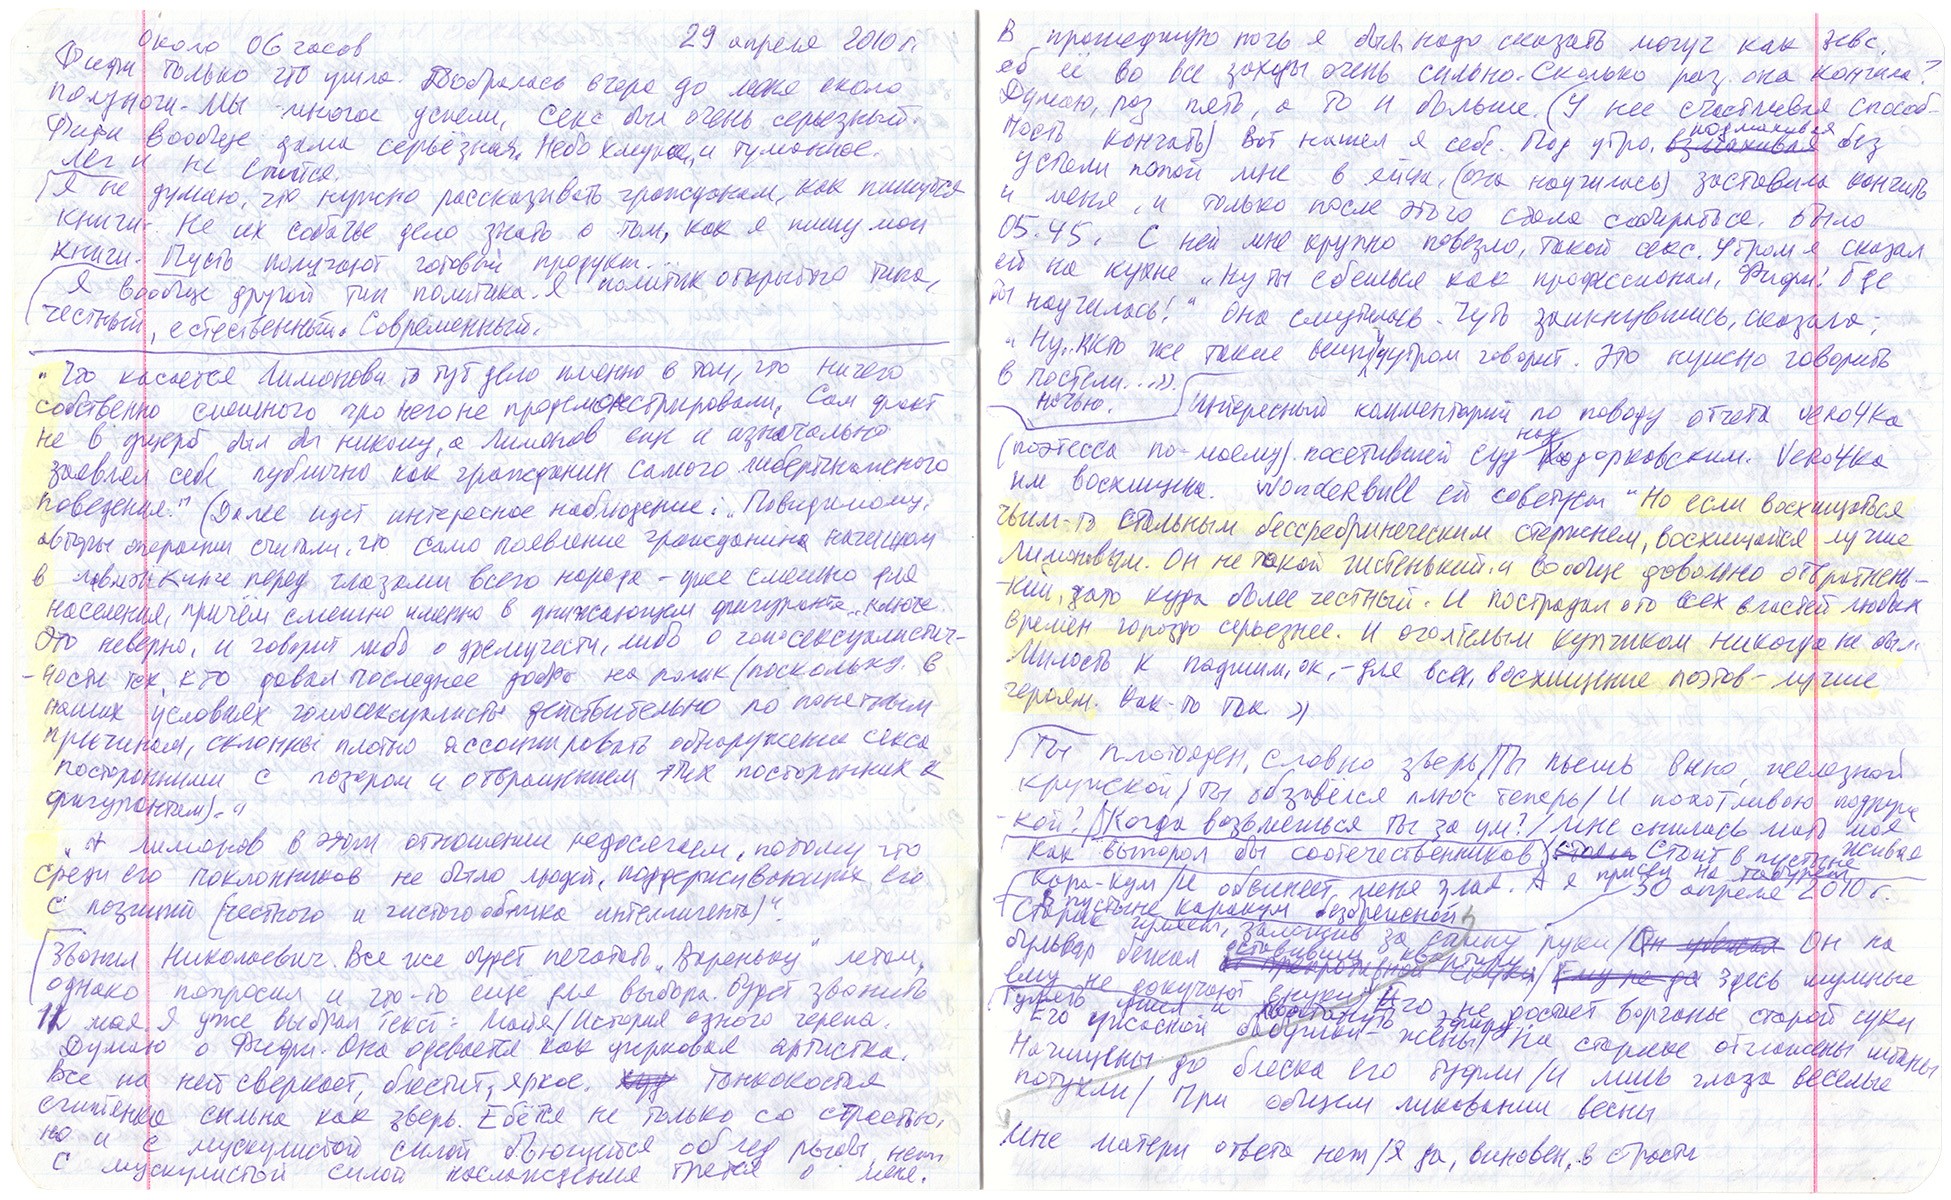 около 06 часов 29 апреля 2010 г.
Фифи только что ушла. Добралась вчера до меня около
полуночи. Мы многое успели, секс был очень серьёзный.
Фифи вообще дама серьёзная. Небо хмурое, и туманное.
Лёг и не спится.
Я не думаю, что нужно рассказывать гражданам, как пишутся
книги. Не их собачье дело знать о том, как я пишу мои
книги. Пусть получают готовый продукт...
Я вообще другой тип политика. Я политик открытого типа,
честный, естественный. Современный.
"Что касается Лимонова то тут дело именно в том, что ничего
собственно смешного про него не продемонстрировали. Сам факт
не в ущерб был бы никому, а Лимонов еще и изначально
заявлял себя публично как гражданин самого либертинажного
поведения." (Далее идет интересное наблюдение: "Повидимому,
авторы операции считали, что само появление гражданина нагишом
в перед глазами всего народа – уже смешно для
населения, причём смешно именно в унижающем фигуранта ключе.
Это неверно, и говорит либо о дремучести, либо о гомосексуалистич-
-ности тех, кто давал последнее добро на показ (поскольку в
наших условиях гомосексуалисты действительно по понятным
причинам, склонны плотно ассоциировать обнаружение секса
посторонними с позором и отвращением этих посторонних к
фигурантам)."
"А Лимонов в этом отношении недосягаем, потому что
среди его поклонников не было людей, поддерживающих его
с позиций (честного и чистого облика интеллигента)".
Звонил Николаевич. Все же будет печатать "Вареньку" летом,
однако попросил и что-то еще для выбора. Будет звонить
11 мая. Я уже выбрал текст: Майя/История одного черепа.
Думаю о Фифи. Она одевается как цирковая артистка.
Все на ней сверкает, блестит, яркое. Тонкокостая
сильна как зверь. Ебётся не только со страстью,
но и с мускулистой силой
с мускулистой силой наслаждения трётся о меня.
В прошедшую ночь я был, надо сказать могуч как Зевс,
еб её во все заходы очень сильно. Сколько раз она кончила?
Думаю, раз пять, а то и больше. (У нее счастливая способ-
ность кончать) Вот нашел я себе. Под утро, подмахивая без
устали попой мне в яйца, (она научилась) заставила кончить
и меня, и только после этого стала собираться. Было
05.45. С ней мне крупно повезло, такой секс. Утром я сказал
ей на кухне "Ну ты ебёшься как профессионал, Фифи! Где
ты научилась!" Она смутилась. Чуть заикнувшись, сказала:
"Ну.. ккто же такие вещи утром говорит. Это нужно говорить
в постели...".
ночью. Интересный комментарий по поводу отчета vero4ka
(поэтесса по-моему) посетившей суд над Ходорковским. Vero4ka
им восхищена. Wonderbull ей советует "Но если восхищаться
чьим-то стальным бессребрянческим стержнем, восхищайся лучше
Лимоновым. Он не такой чистенький и вообще довольно отвратнень-
-кий, зато куда более честный. И пострадал ото всех властей любых
времен гораздо серьезнее. И оголтелым купчиком никогда не был.
Милость к падшим, ок, – для всех, восхищение поэтов – лучше
героям. Как-то так."
Ты плотояден, словно зверь/Ты пьешь вино, железной
кружкой/Ты обзавелся плюс теперь/И похотливою подруж-
-кой?/Когда возьмешься ты за ум?/Мне снилась мать моя
живая
Как выпорол бы соотечественников Стоит в пустыне
Кара-Кум/И обвиняет меня злая. А я привёл на
30 апреля 2010 г.
В пустыне каракум безбрежной
Старик гуляет, заложив за спину руки/ Он на
бульвар бежал оставивши квартиру/ Здесь шумные
ему не докучают внуки/Его не достаёт ворчанье старой суки
Его ужасной жены/На старике отглажены штаны
Начищены до блеска его туфли/И лишь глаза веселые
потухли/При общем ликовании весны
Мне матери ответа нет/Я да, виновен, в страсти